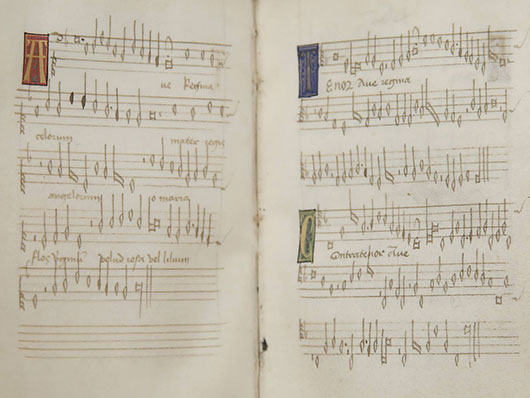 Ave Regina
celorum mater regis
angelorum o maria
flos virginum velud rosa vel lilium
Tenor Ave regina
Contratenor Ave